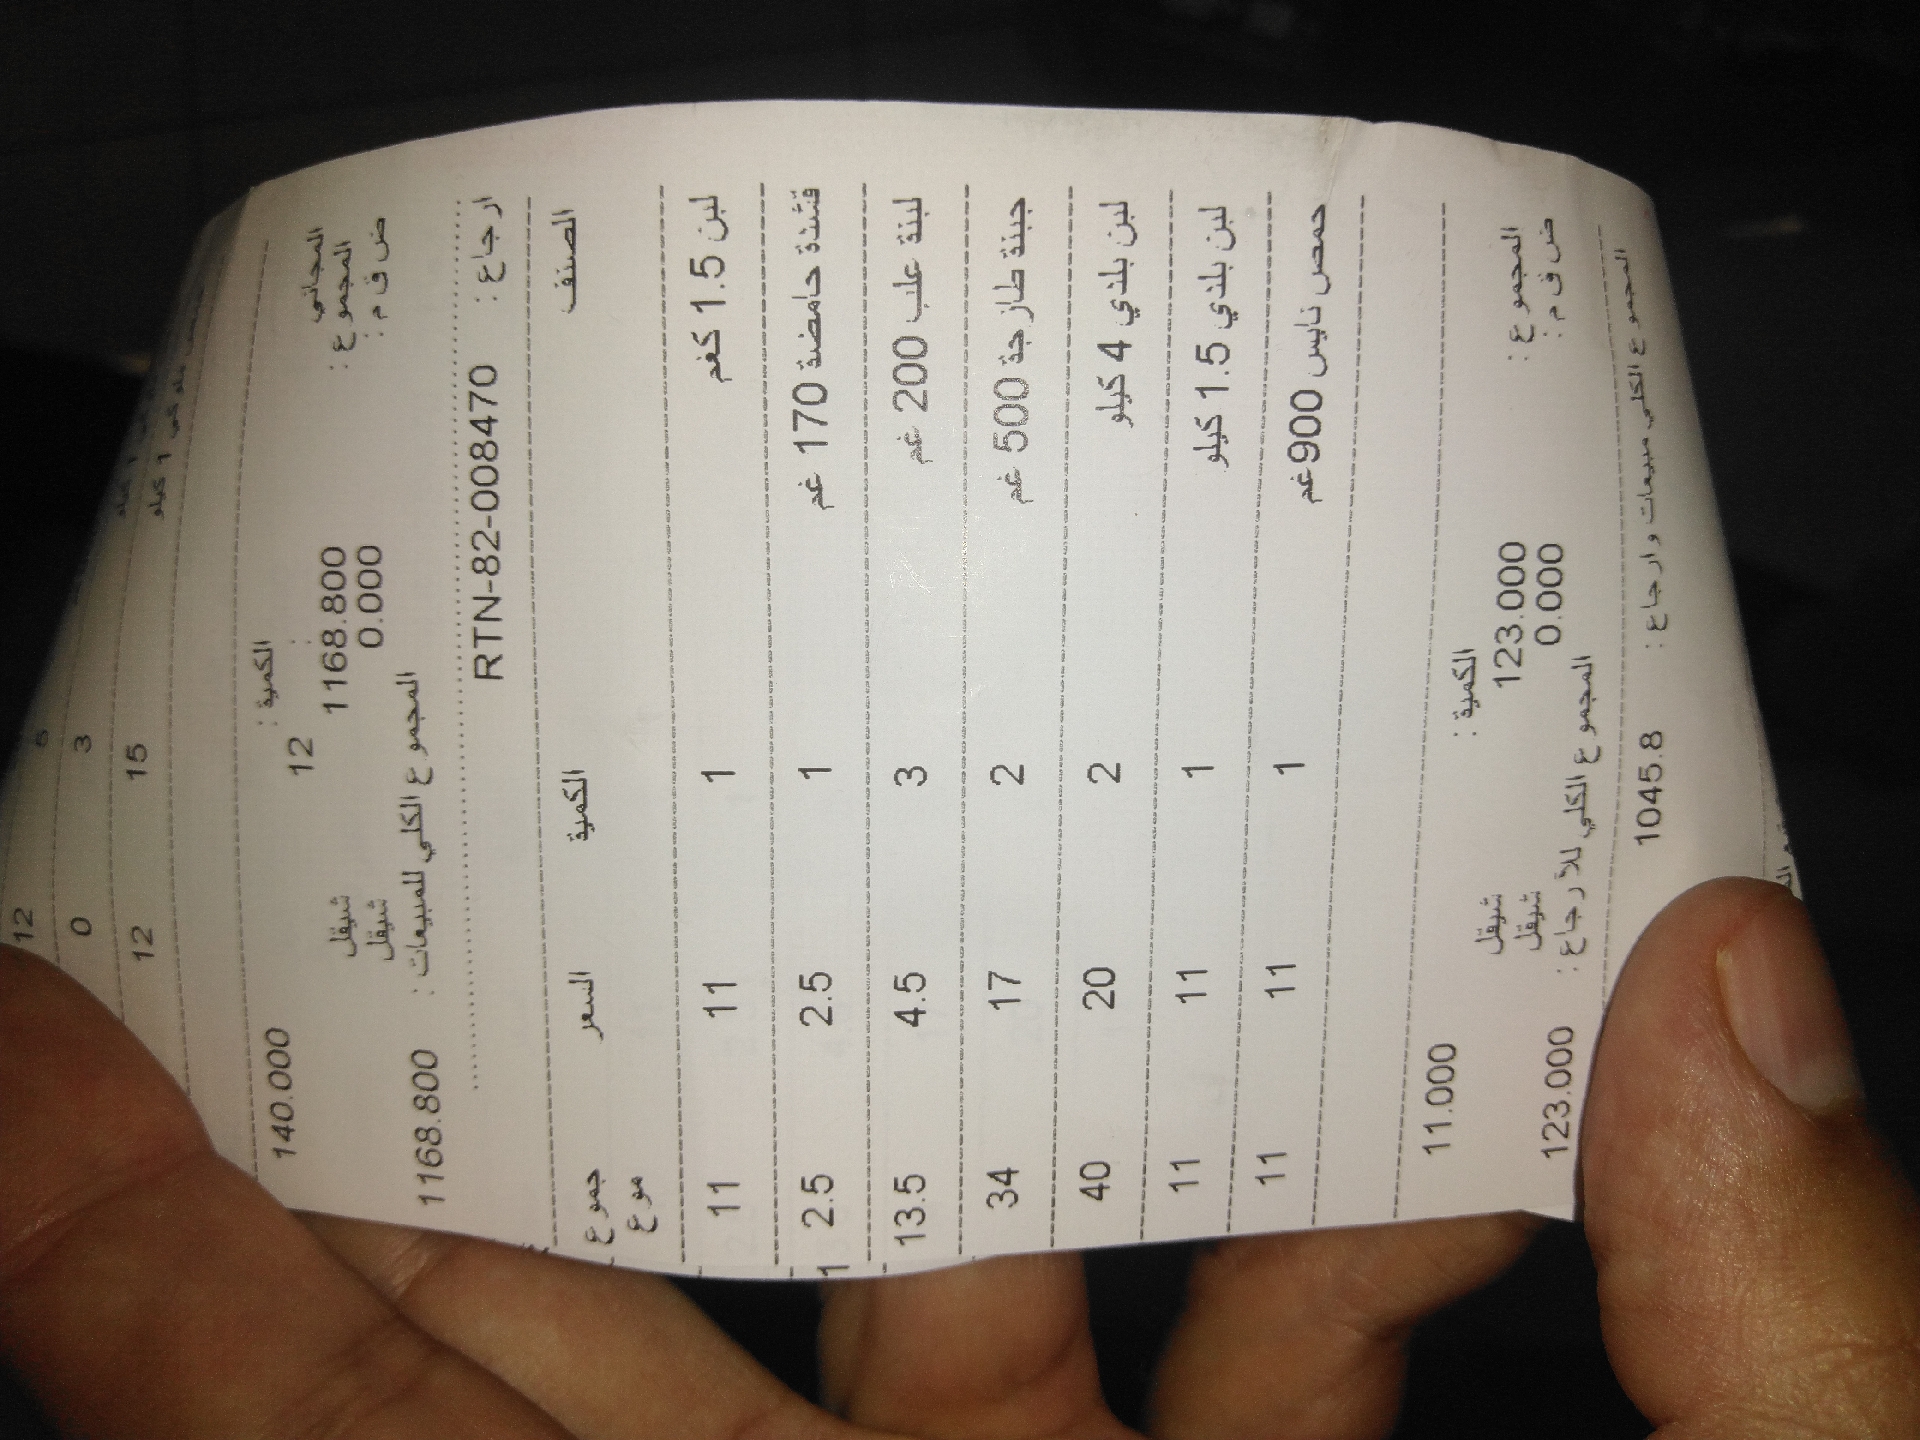 12 5
0 3
12 15 1 كيلو
140.000 الكمية :
12 : المجاني
شيقل 1168.800 المجموع :
شيقل 0.000 ض ق م :
1168.800 المجموع الكلي للمبيعات :
ارجاع : RTN-82-008470
الصنف الكمية السعر جموع
موع
لبن 1.5 كغم 1 11 11
قشدة حامضة 170 غم 1 2.5 2.5
لبنة علب 200 غم 3 4.5 13.5
جبنة طازجة 500 غم 2 17 34
لبن بلدي 4 كيلو 2 20 40
لبن بلدي 1.5 كيلو 1 11 11
حمص نايس 900 غم 1 11 11
11.000 الكمية :
شيقل 123.000 المجموع :
شيقل 0.000 ض ق م :
123.000 المجموع الكلي للأرجاع :
المجموع الكلي مبيعات وارجاع : 1045.8